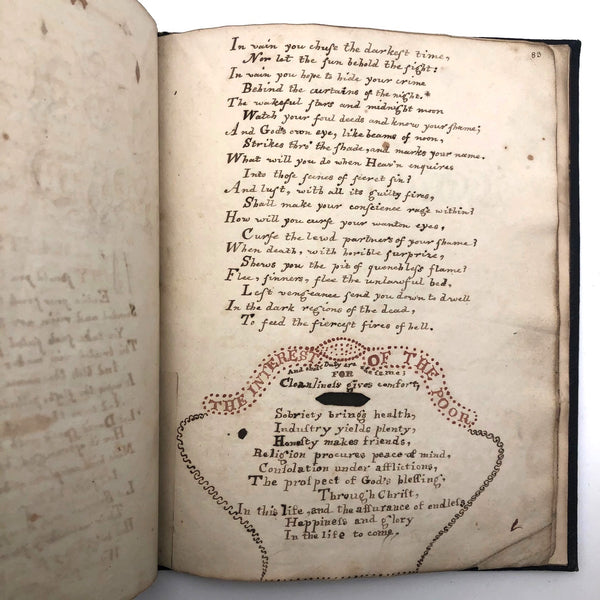 83
In vain you chuſe the darkeſt time,
Nor let the ſun behold the ſight:
In vain you hope to hide your crime
Behind the curtains of the night.*
The wakeful ſtars and midnight moon
Watch your foul deeds and know your ſhame;
And God's own eye, like beams of noon,
Strikes thro' the ſhade, and marks your name.
What will you do when Heav'n enquires
Into thoſe ſcenes of ſecret ſin?
And luſt, with all its guilty fires,
Shall make your conſcience rage within?
How will you curſe your wanton eyes,
Curſe the lewd partners of your ſhame?
When death, with horrible ſurprize,
Shews you the pit of quenchleſs flame?
Flee, ſinners, flee the unlawful bed,
Leſt vengeance ſend you down to dwell
In the dark regions of the dead,
To feed the fierceſt fires of hell.
THE INTEREST OF THE POOR
And their Duty are the ſame;
FOR
Cleanlineſs gives comfort,
Sobriety brings health,
Induſtry yields plenty,
Honeſty makes friends,
Religion procures peace of mind,
Conſolation under afflictions,
The proſpect of God's bleſſing,
Through Chriſt,
In this life, and the aſſurance of endleſs
Happineſs and glory
In the life to come.